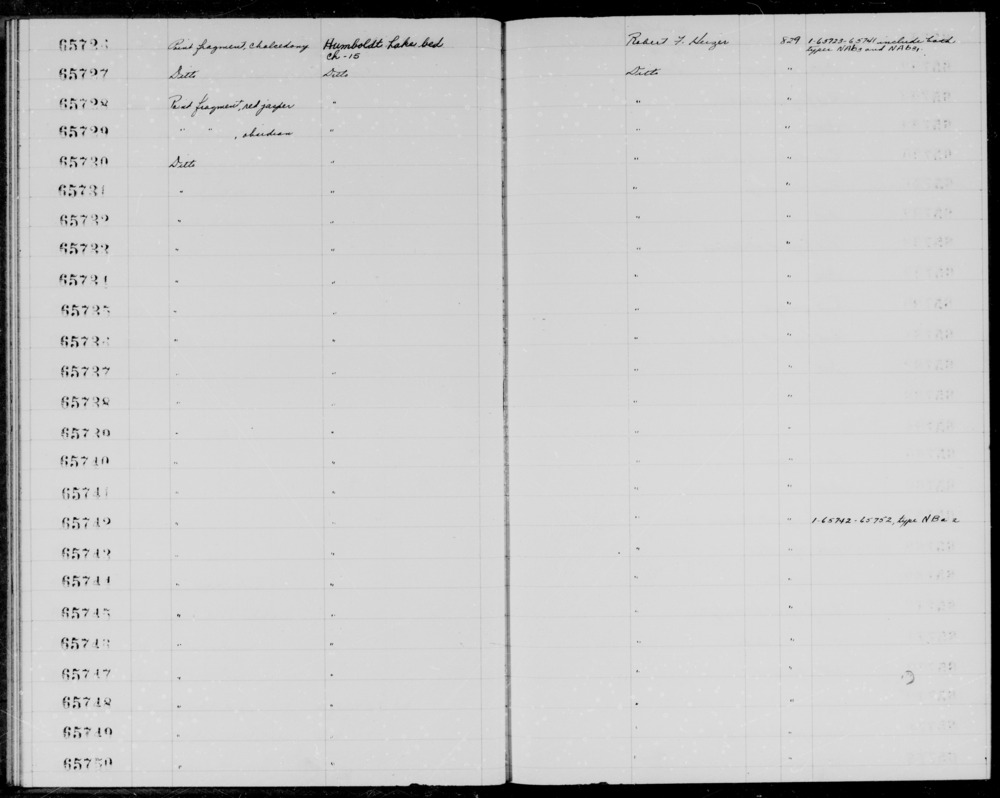 65726 Point fragment, chalcedony Humboldt Lake bed Robert F. Heizer 829 1-65723-65741 include both
Ch-15 types NAb3 and NAb4
65727 Ditto Ditto Ditto "
65728 Point fragment, red jasper " " "
65729 " " , obsidian " " "
65730 Ditto " " "
65731 " " " "
65732 " " " "
65733 " " " "
65734 " " " "
65735 " " " "
65736 " " " "
65737 " " " "
65738 " " " "
65739 " " " "
65740 " " " "
65741 " " " "
65742 " " " " 1-65742-65752, type NBa 2
65743 " " " "
65744 " " " "
65745 " " " "
65746 " " " "
65747 " " " "
65748 " " " "
65749 " " " "
65750 " " " "